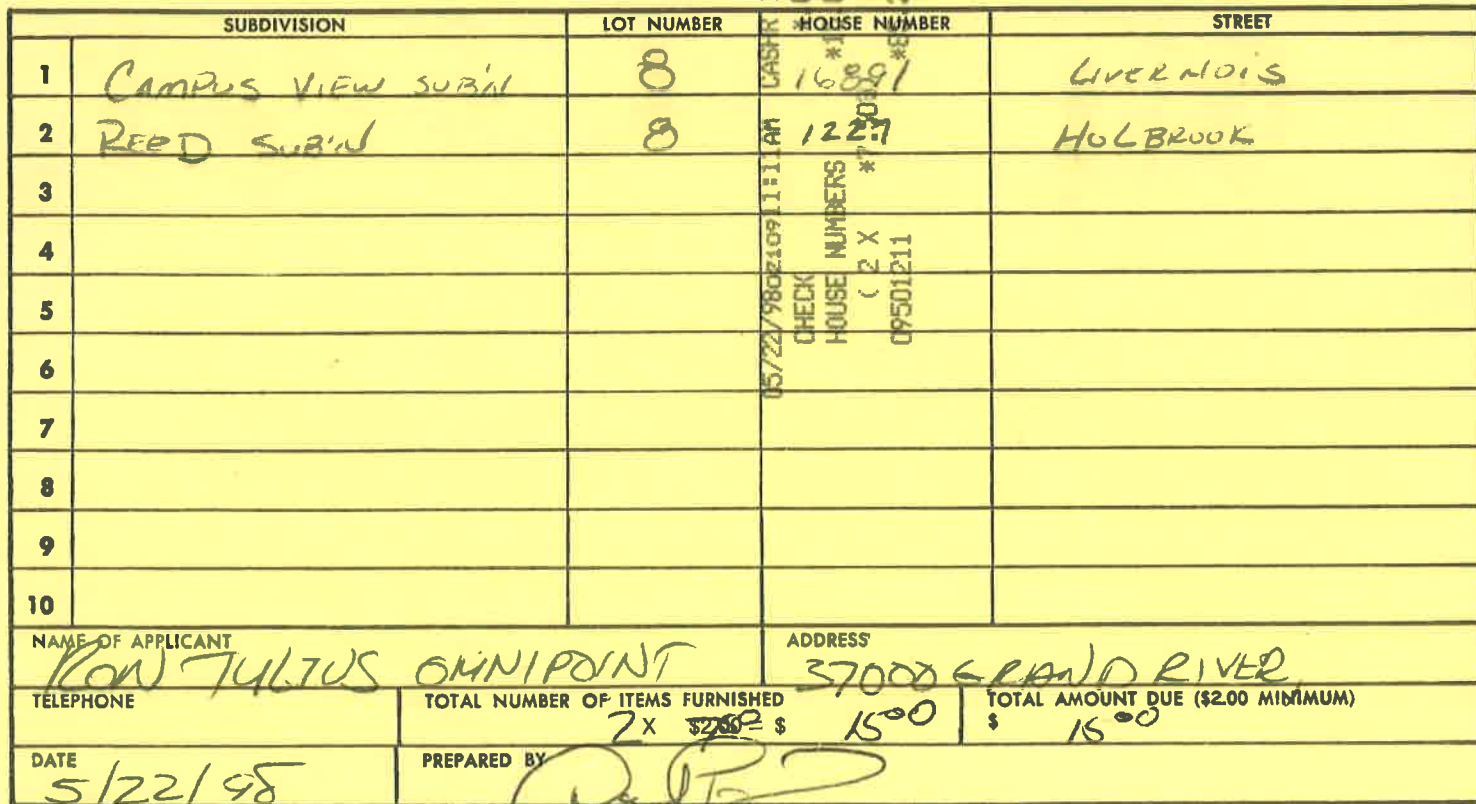 SUBDIVISION LOT NUMBER HOUSE NUMBER STREET
1 CAMPUS VIEW SUB'N 8 16891 LIVERNOIS
2 REED SUB'N 8 1227 HOLBROOK
3
4
5
6
7
8
9
10
05/22/98 11:11AM CASHR
CHECK
HOUSE NUMBERS
( 2 X
09501211
NAME OF APPLICANT ADDRESS
RON JULIUS OMNIPOINT 37000 GRAND RIVER
TELEPHONE TOTAL NUMBER OF ITEMS FURNISHED TOTAL AMOUNT DUE ($2.00 MINIMUM)
2 X $ 15.00 $ 15.00
DATE PREPARED BY
5/22/98